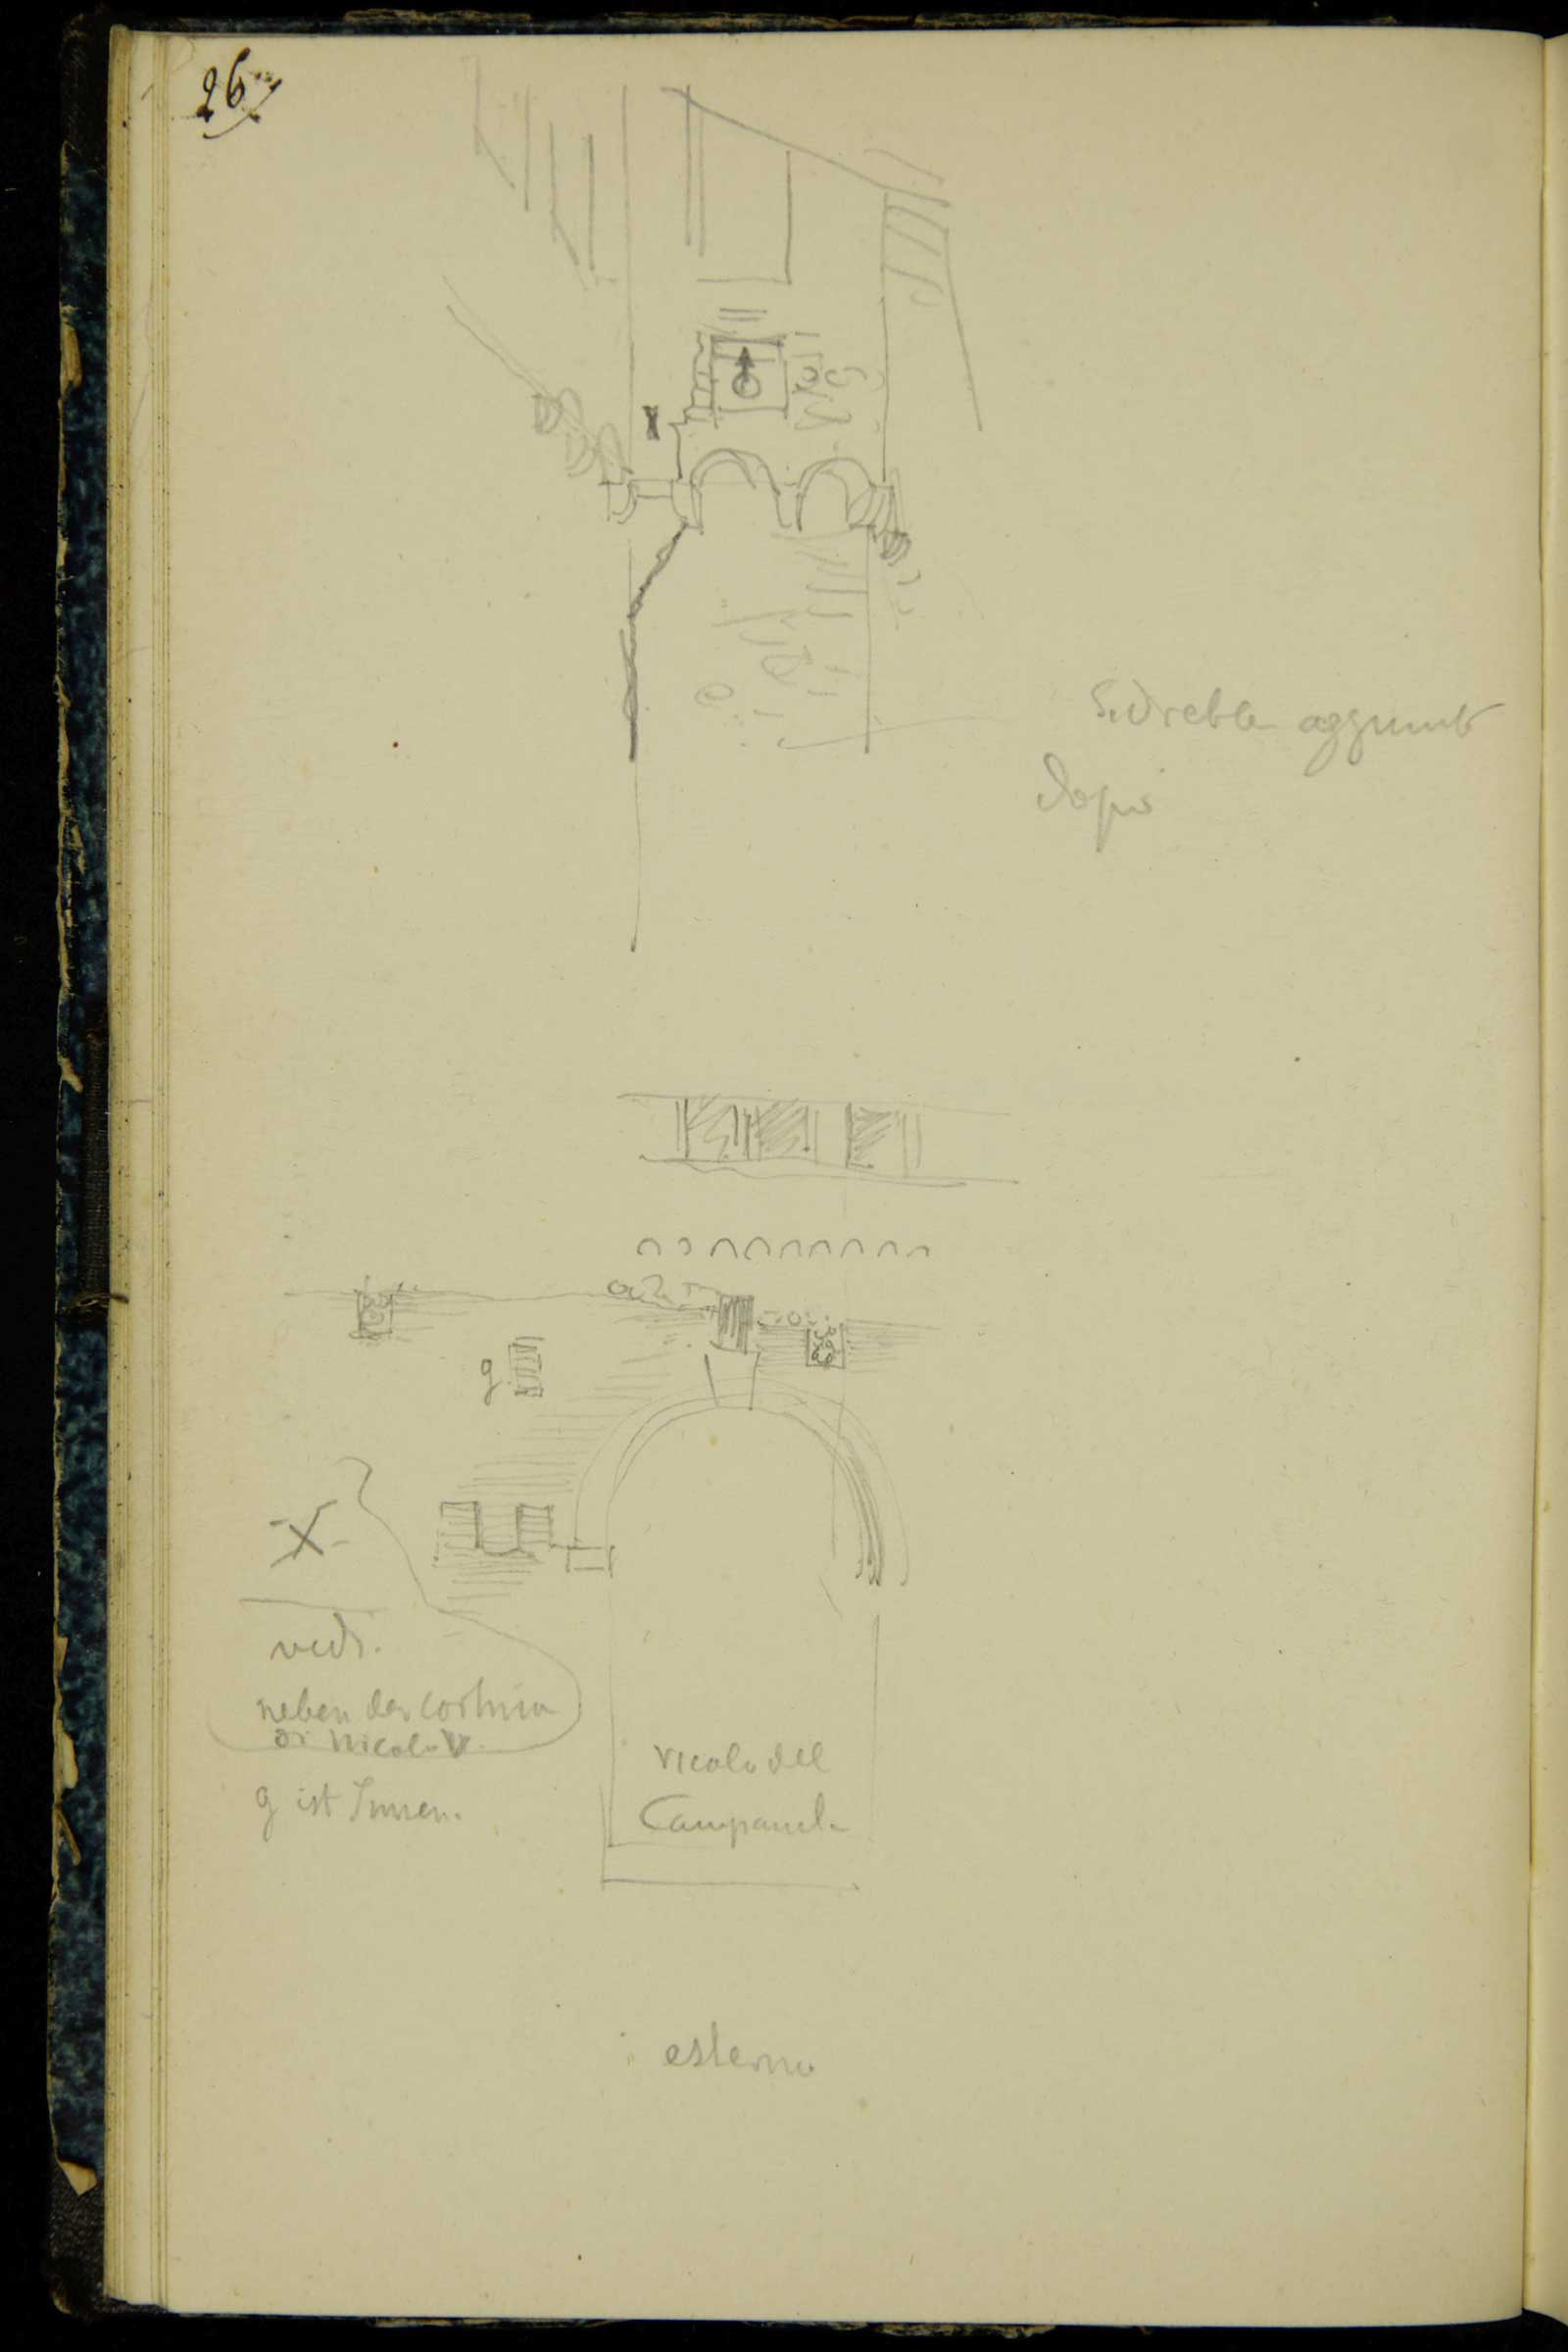 26
Sidrebbe aggiunto
dopo
g
X
vedi.
neben der cortina
di Nicolo V.
g ist Innen.
Vicolo del
Campanile
esterno